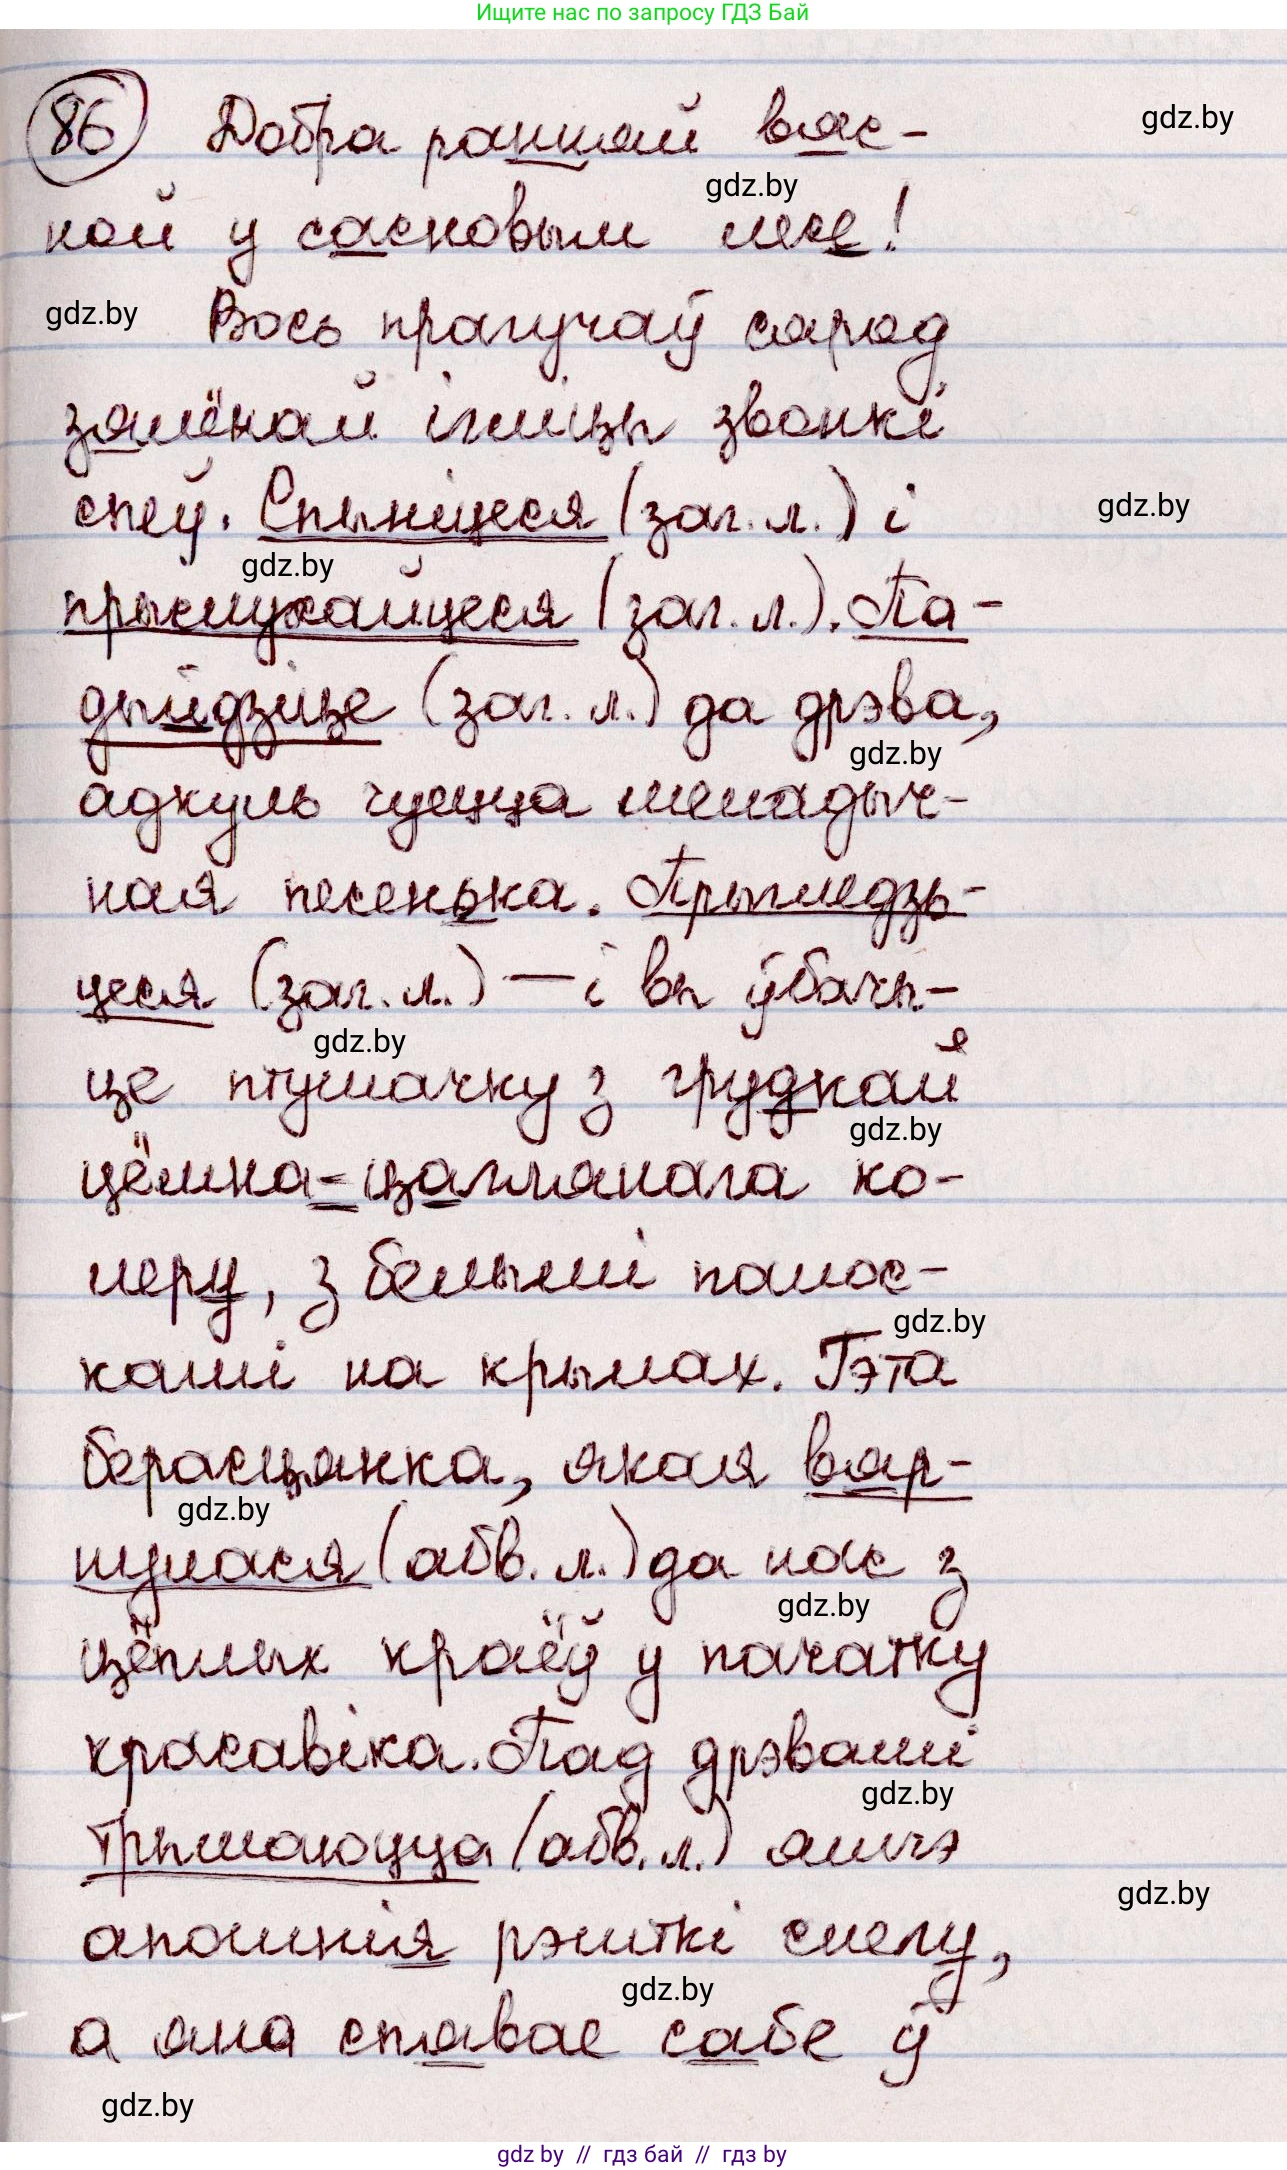 Ищите нас по запросу ГДЗ Бай
86 Добра ранняй вяс-
gdz.by
gdz.by
ной у сасновым лесе!
gdz.by
Вось прагучаў сярод
зялёнай ігліцы звонкі
спеў. Спыніцеся (заг. л.) і
gdz.by
gdz.by
прыслухайцеся (заг. л.). Па-
дыйдзіце (заг. л.) да дрэва,
gdz.by
адкуль чуецца меладыч-
ная песенька. Прыгледзь-
цеся (заг. л.) — і вы ўбачы-
gdz.by
це птушачку з грудкай
gdz.by
цёмна-цаглянага ко-
леру, з белымі палос-
gdz.by
камі на крылах. Гэта
берасцянка, якая вяр-
gdz.by
нулася (абв. л.) да нас з
gdz.by
цёплых краёў у пачатку
красавіка. Пад дрэвамі
gdz.by
трымаюцца (абв. л.) яшчэ
gdz.by
апошнія рэшткі снегу,
gdz.by
а яна спявае сабе ў
gdz.by
gdz by // гдз бай // гдз by